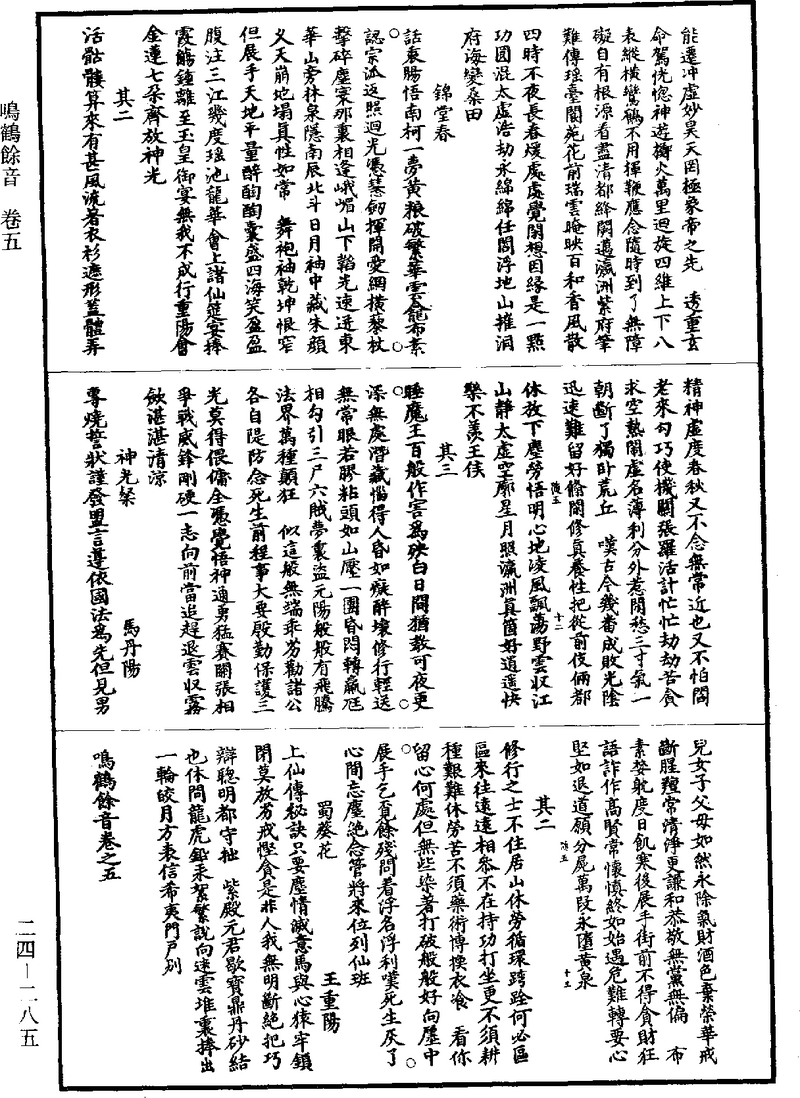 鳴鶴餘音 卷五
能遷冲虛妙昊天罔極象帝之先 透重玄
命駕恍惚神遊擲火萬里迴旋四維上下八
表縱橫鸞鶴不用揮鞭應念隨時到了無障
礙自有根源看盡清都絳闕邁瀛洲紫府筆
難傳瑤臺閬苑花前瑞雲晻映百和香風散
四時不夜長春煖處處覺閑想因緣是一點
功圓混太虛浩劫永綿綿任閻浮地山摧洞
府海變桑田
錦堂春
話裏腸悟南柯一夢黃粮破繁華雲籠布素
認宗派返照迴光憑慧劒揮開愛網橫藜杖
擊碎塵寰那裏相逢峨嵋山下韜光速迸東
華山旁林泉隱南辰北斗日月袖中藏朱頭
义天崩地塌真性如常 舞袍袖乾坤恨窄
但展手天地平量醉酩酊囊盛四海笑盈盈
腹注三江幾度瑶池龍華會上諸仙筵宴捧
霞觴鍾離至玉皇御宴無我不成行重陽會
金蓮七朵齊放神光
其二
活骷髏算來有甚風流著衣衫遮形蓋體弄
精神虛度春秋又不念無常近也又不怕閻
老來勾巧使機關張羅活計忙忙劫劫苦貪
求空熱鬧虛名薄利分外惹閑愁三寸氣一
朝斷了獨卧荒丘 嘆古今幾番成敗光陰
迅速難留好脩閑修真養性把從前伎倆都
休放下塵勞悟明心地凌風飄蕩野雲収江
山靜太虛空廓星月照瀛洲真箇好逍遥快
樂不羨王侯
其三
睡魔王百般作害爲殃白日間猶教可夜更
深無處潛藏惱得人昏如癡醉壞修行輕送
無常眼若膠粘頭如山壓一團昏悶轉羸尫
相勾引三尸六賊夢裏盜元陽般般有飛騰
法界萬種顛狂 似這般無端乖劣勸諸公
各自隄防念死生前程事大要殷勤保護三
光莫得偎慵全憑覺悟神通勇猛賽關張相
爭戰威鋒剛硬一志向前當追趕退雲収霧
歛湛湛清涼
神光粲 馬丹陽
專燒誓狀謹發盟言遵依國法爲先但見男
兒女子父母如然永除氣財酒色棄榮華戒
斷腥羶常清淨更謙和恭敬無黨無偏 布
素婪躭度日飢寒後展手街前不得貪財狂
語詐作高賢常懷慎終如始遇危難轉要心
堅如退道願分屍萬段永墮黃泉
其二
修行之士不住居山休勞循環跨跧何必區
區來往遠遠相叅不在持功打坐更不須耕
種艱難休勞苦不須藥術博換衣飡 看你
留心何處但無些染著打破般般好向鄽中
展手乞覔餘殘問看浮名浮利嘆死生灰了
心間忘塵絕念管將來位列仙班
蜀葵花 王重陽
上仙傳秘訣只要塵情滅意馬與心猿牢鎖
閉莫放劣戒慳貪是非人我無明斷絕把巧
辯聰明都守拙 紫殿元君歇寶鼎丹砂結
也休問龍虎鉛汞絮繁說向迷雲堆裏捧出
一輪皎月方表信希夷門戶别
鳴鶴餘音卷之五
二四—二八五